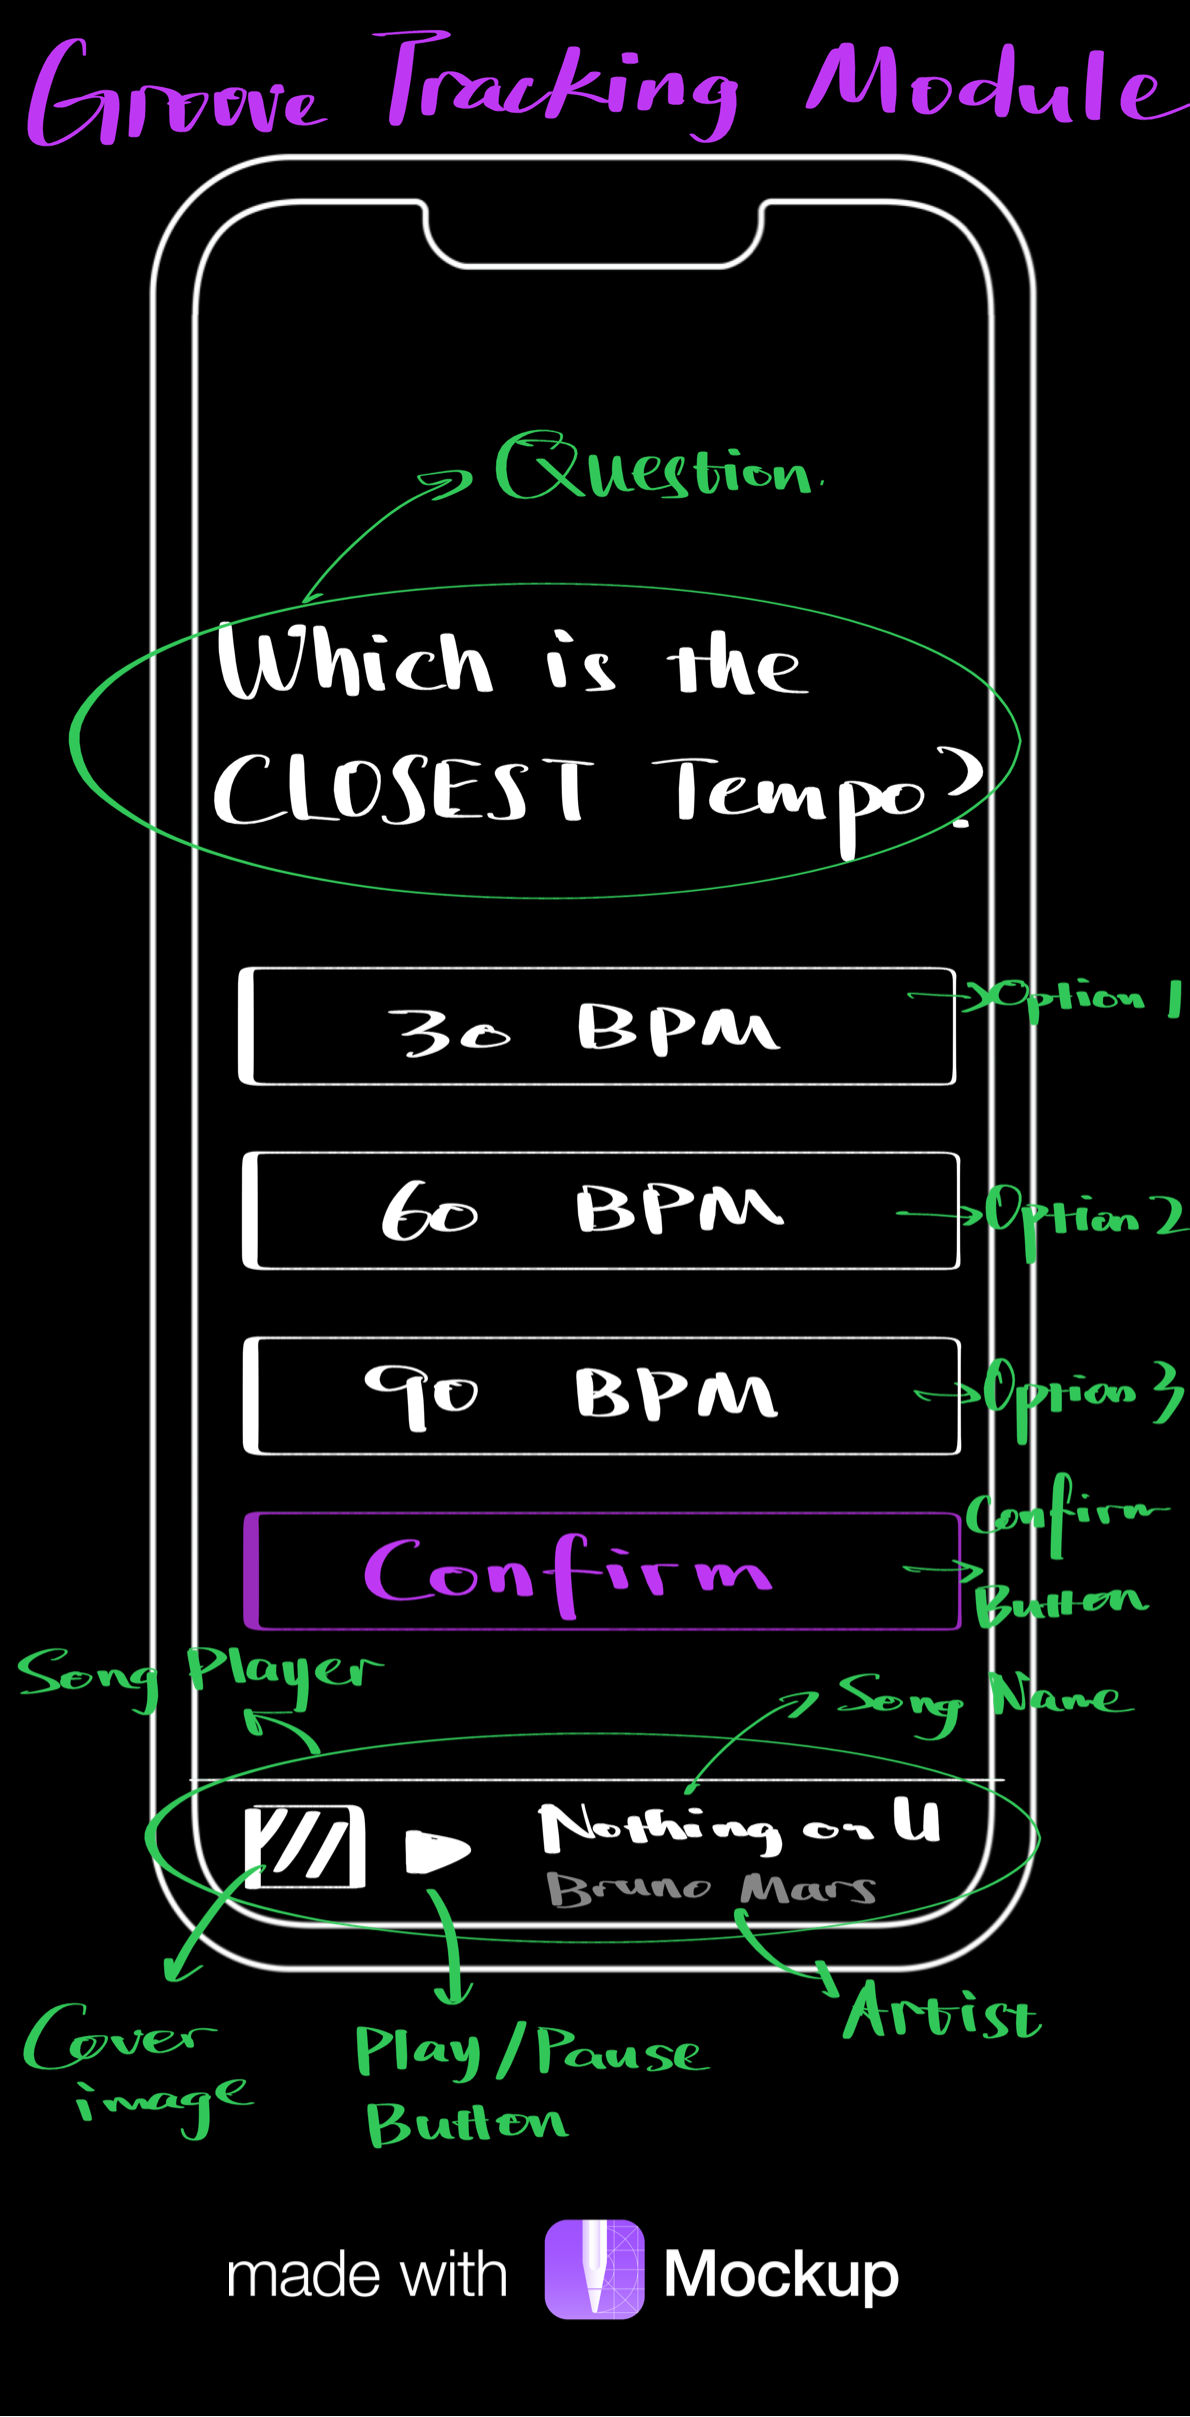 Groove Tracking Module
Question.
Which is the
CLOSEST Tempo?
30 BPM
Option 1
60 BPM
Option 2
90 BPM
Option 3
Confirm
Confirm
Button
Song Player
Song Name
Nothing on U
Bruno Mars
Cover
image
Play/Pause
Button
Artist
made with Mockup